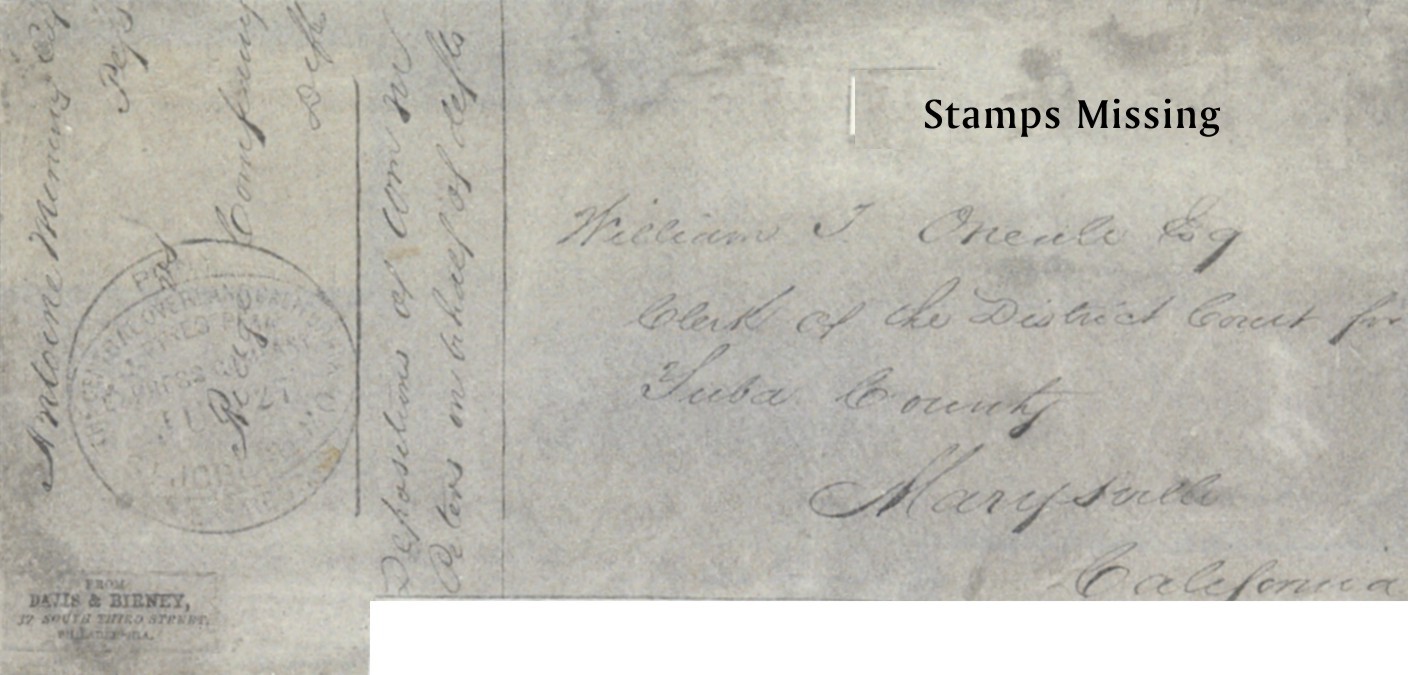 Stamps Missing
William T. Oneale Esq
Clerk of the District Court for
Yuba County
Marysville
California
Antoine
Company
Page
Depositions of
Peters on behalf of defts
THE CENTRAL OVERLAND CALIFORNIA
& PIKES PEAK
EXPRESS COMPANY
ST. JOSEPH
FROM
DAVIS & BIRNEY,
37 SOUTH THIRD STREET,
PHILADELPHIA.